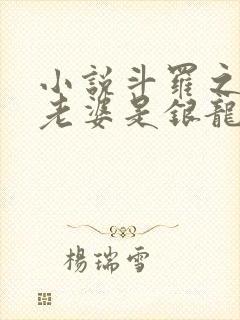 小說斗羅之
老婆是銀龍
楊瑞雪